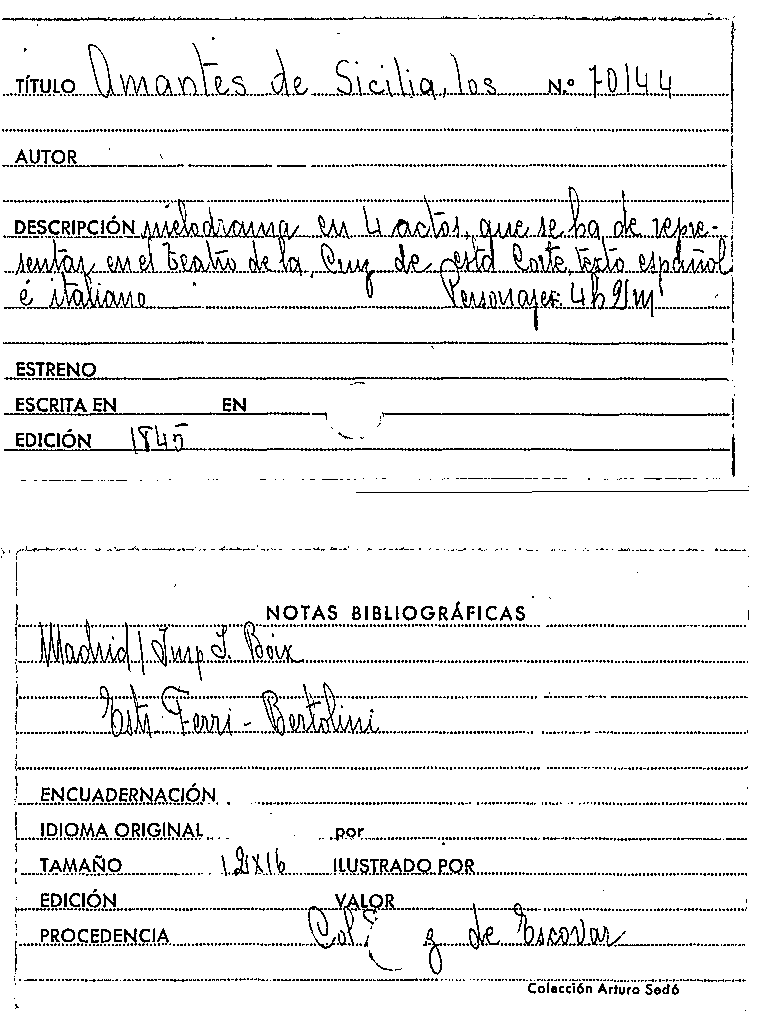 TÍTULO Amantes de Sicilia, los N.º 70144
AUTOR
DESCRIPCIÓN melodrama en 4 actos, que se ha de repre-
sentar en el teatro de la Cruz de esta Corte, texto español
é italiano Personajes: 4h 2m
ESTRENO
ESCRITA EN EN
EDICIÓN 1845
NOTAS BIBLIOGRÁFICAS
Madrid / Imp I. Boix
Estr. Ferri - Bertolini
ENCUADERNACIÓN
IDIOMA ORIGINAL por
TAMAÑO 12x16 ILUSTRADO POR
EDICIÓN VALOR
PROCEDENCIA Col. z de Escovar
Colección Arturo Sedó